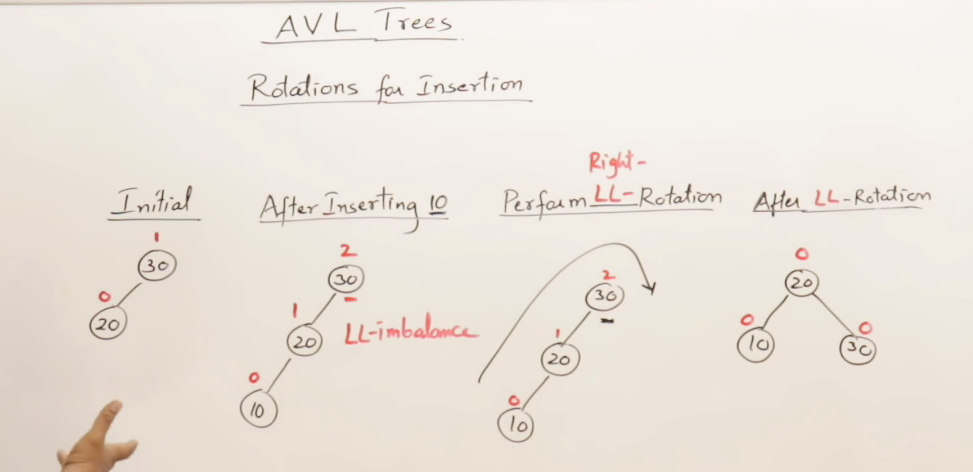 AVL Trees
Rotations for Insertion
Initial
1
30
0
20
After Inserting 10
2
30
1
20
LL-imbalance
0
10
Right-
Perform LL-Rotation
2
30
1
20
0
10
After LL-Rotation
0
20
0
10
0
30